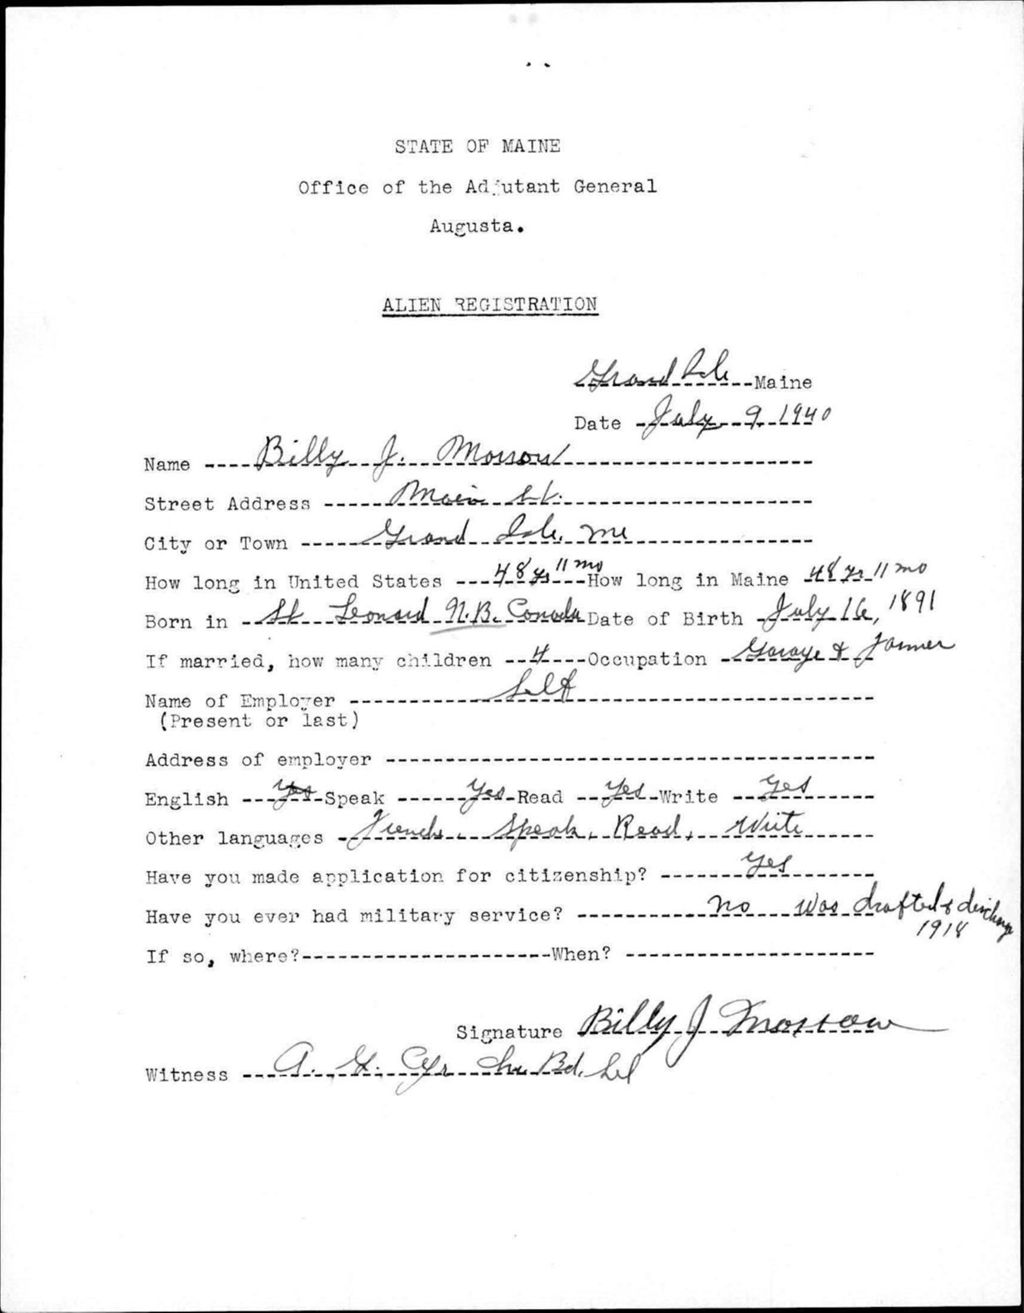 STATE OF MAINE
Office of the Adjutant General
Augusta.
ALIEN REGISTRATION
Grand Isle Maine
Date July 9, 1940
Name Billy J. Morrow
Street Address Main St.
City or Town Grand Isle, Me
How long in United States 48 ys 11 mo How long in Maine 48 ys 11 mo
Born in St Leonard N.B. Canada Date of Birth July 16, 1891
If married, how many children 4 Occupation Garage & Farmer
Name of Employer Self
(Present or last)
Address of employer
English Yes Speak Yes Read Yes Write Yes
Other languages French, Speak, Read, Write
Have you made application for citizenship? Yes
Have you ever had military service? no was drafted & discharge
1918
If so, where? When?
Signature Billy J Morrow
Witness A. G. Cyr Bd. Sel